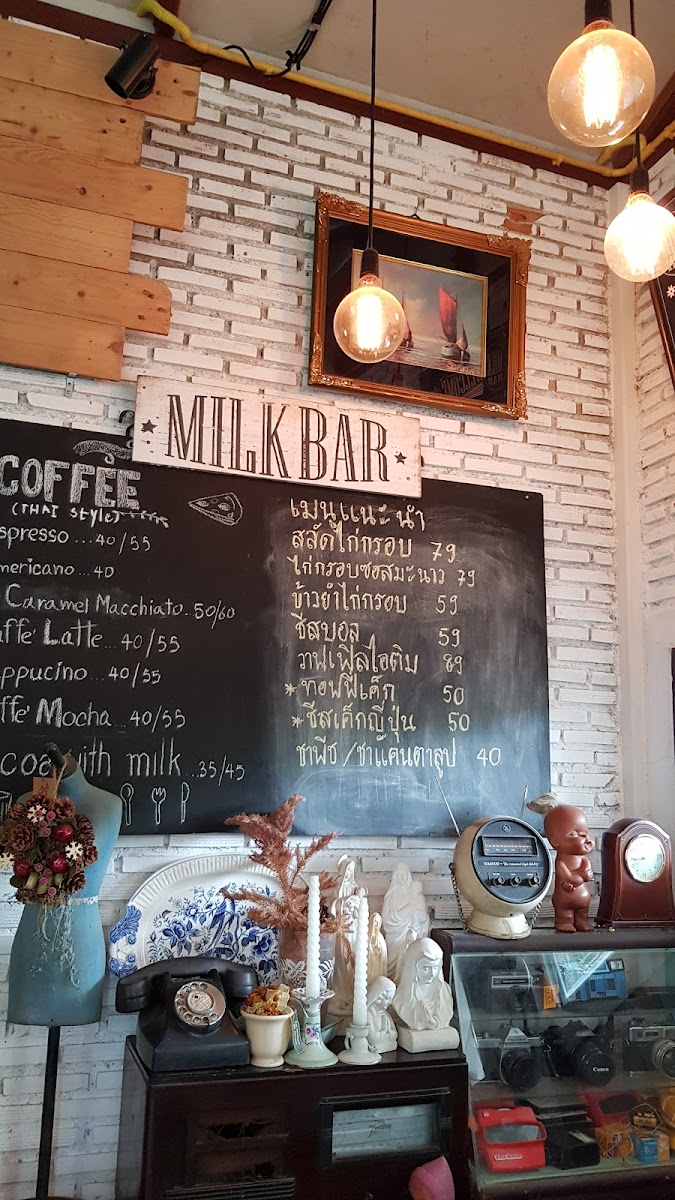 MILK BAR
COFFEE
(THAI Style)
spresso ... 40/55
mericano ... 40
Caramel Macchiato .. 50/60
affe' Latte ... 40/55
appucino ... 40/55
ffe' Mocha ... 40/55
coa with milk ... 35/45
เมนูแนะนำ
สลัดไก่กรอบ 79
ไก่กรอบซอสมะนาว 79
ข้าวยำไก่กรอบ 59
ชีสบอล 59
วาฟเฟิลไอติม 89
*ทอฟฟี่เค้ก 50
*ชีสเค้กญี่ปุ่น 50
ชาพีช / ชาแคนตาลูป 40
Canon